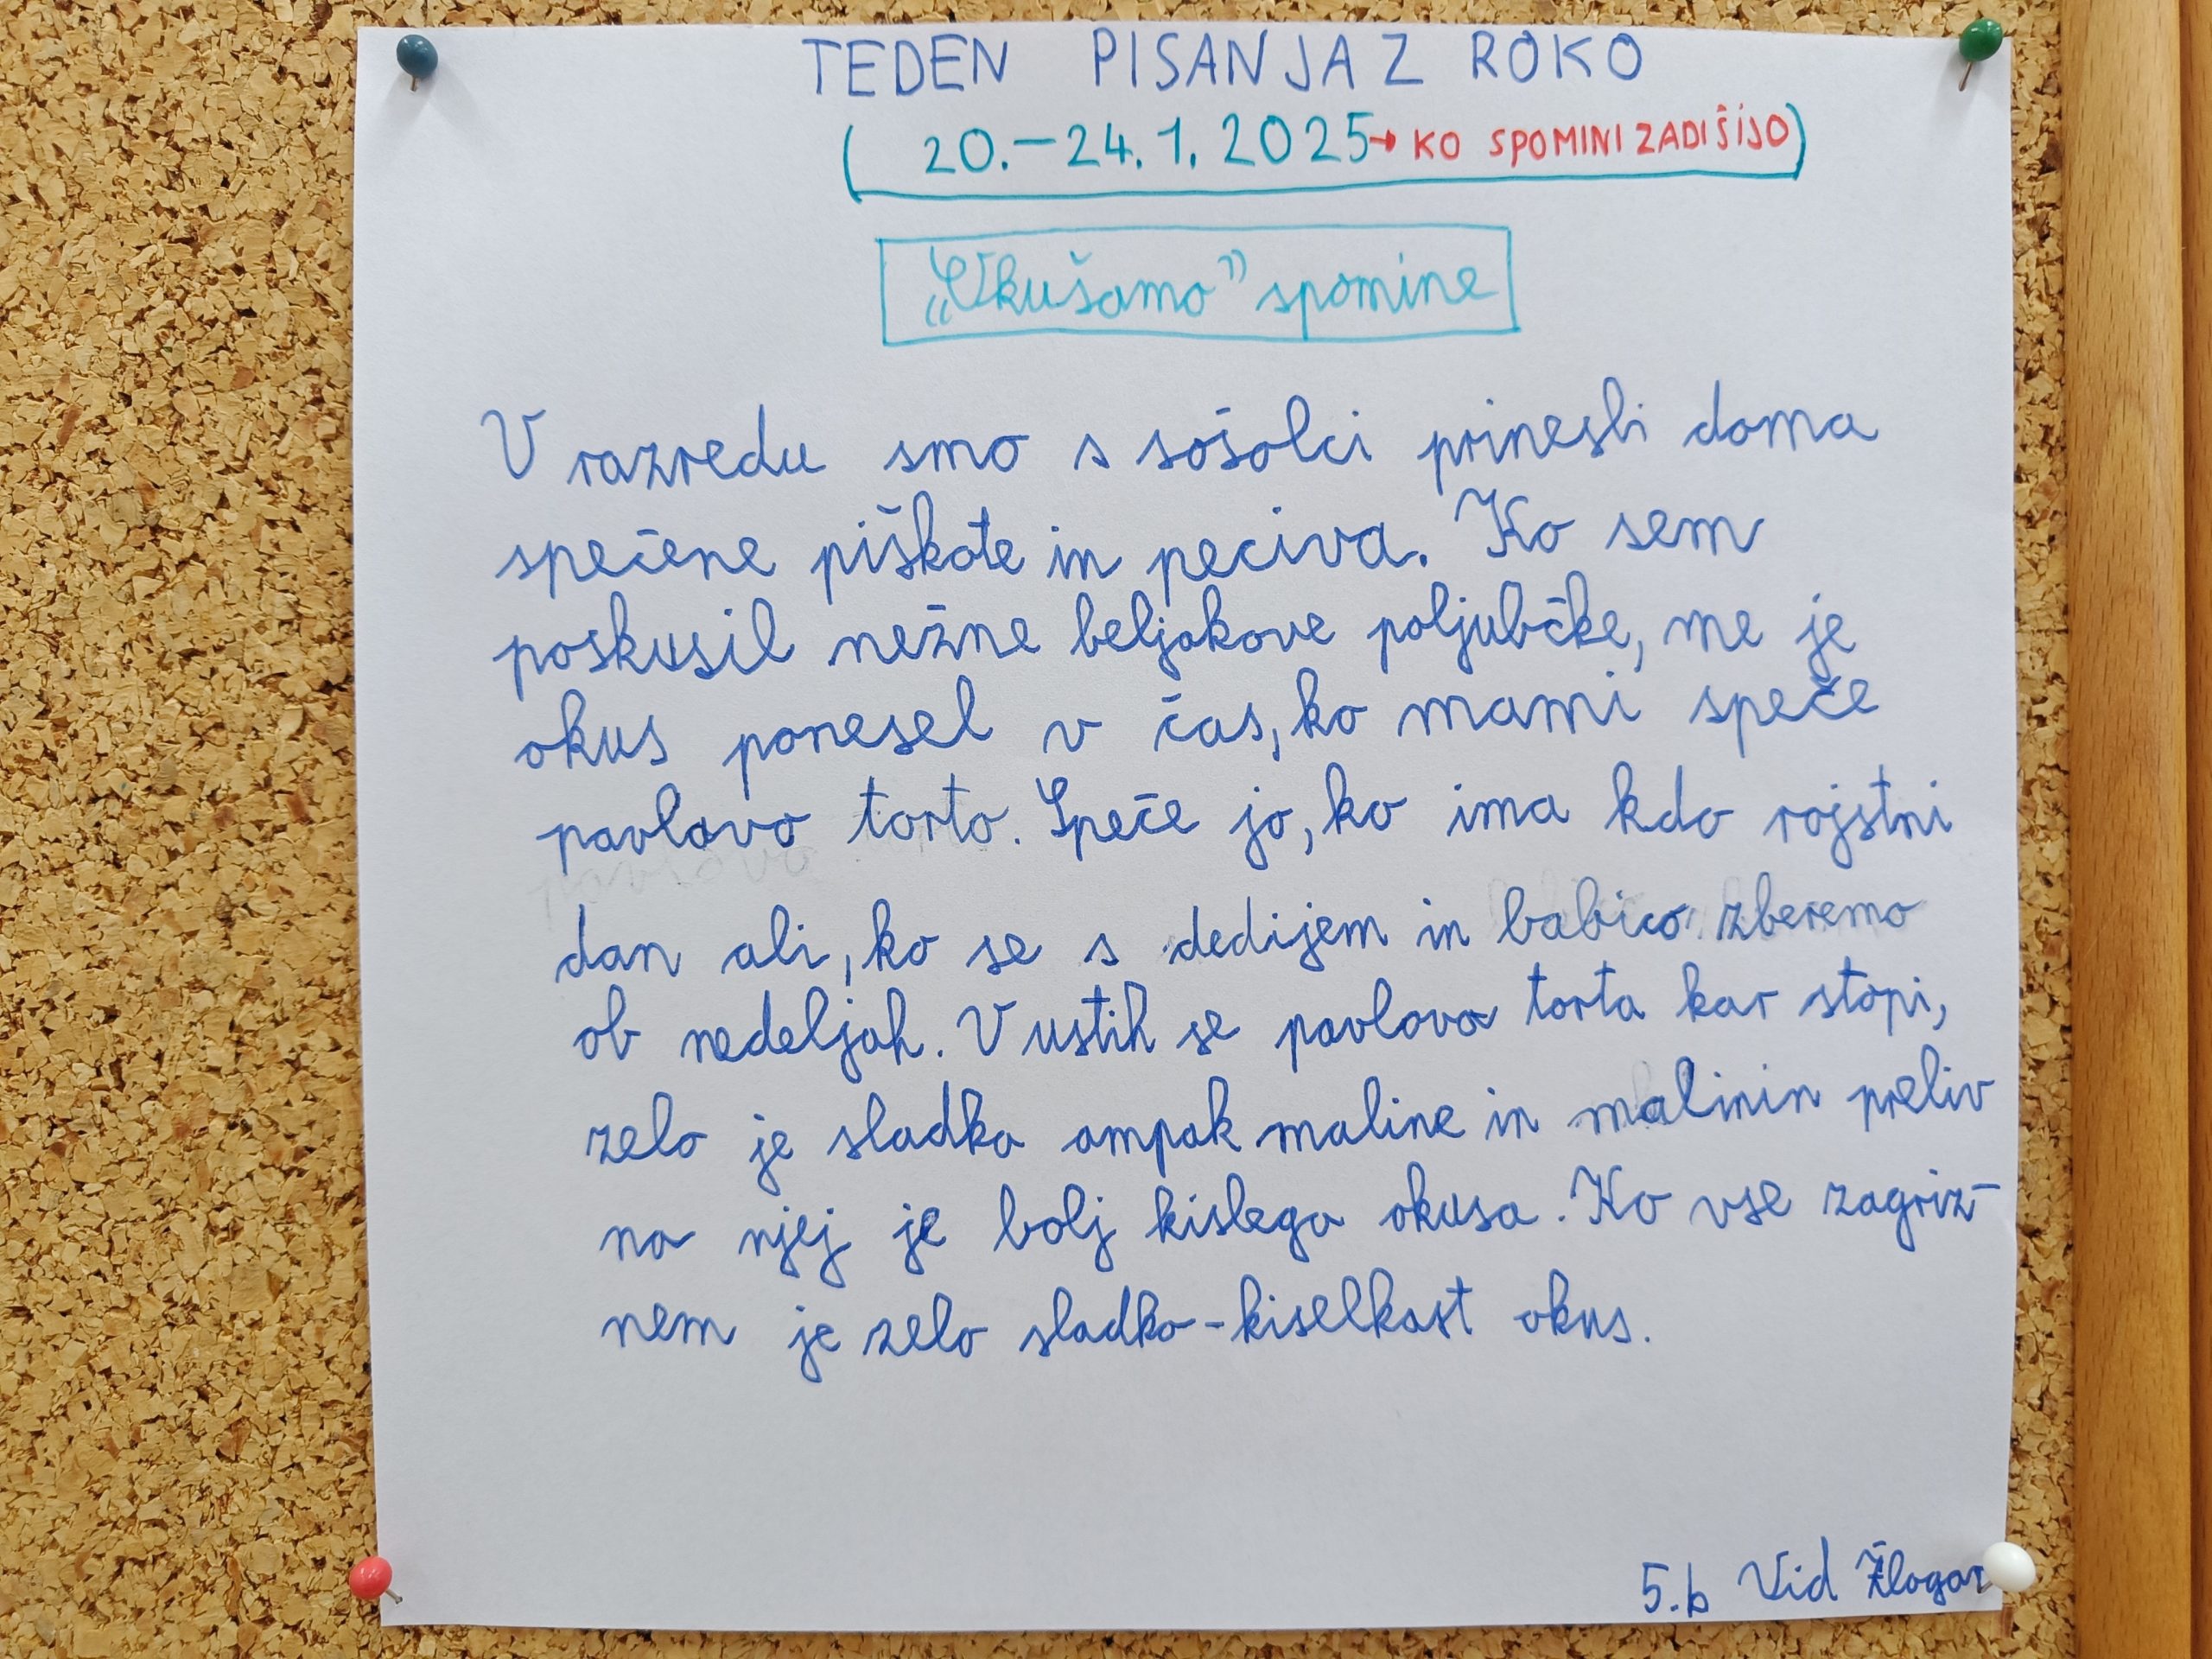 TEDEN PISANJA Z ROKO
(20.-24.1.2025→ KO SPOMINI ZADIŠIJO)
„Okušamo” spomine
V razredu smo s sošolci prinesli doma
spečene piškote in peciva. Ko sem
poskusil nežne beljakove poljubčke, me je
okus ponesel v čas, ko mami speče
pavlovo torto. Speče jo, ko ima kdo rojstni
dan ali, ko se s dedijem in babico zberemo
ob nedeljah. V ustih se pavlova torta kar stopi,
zelo je sladka ampak maline in malinin preliv
na njej je bolj kislega okusa. Ko vse zagriz-
nem je zelo sladko-kiselkast okus.
5.b Vid Žlogar